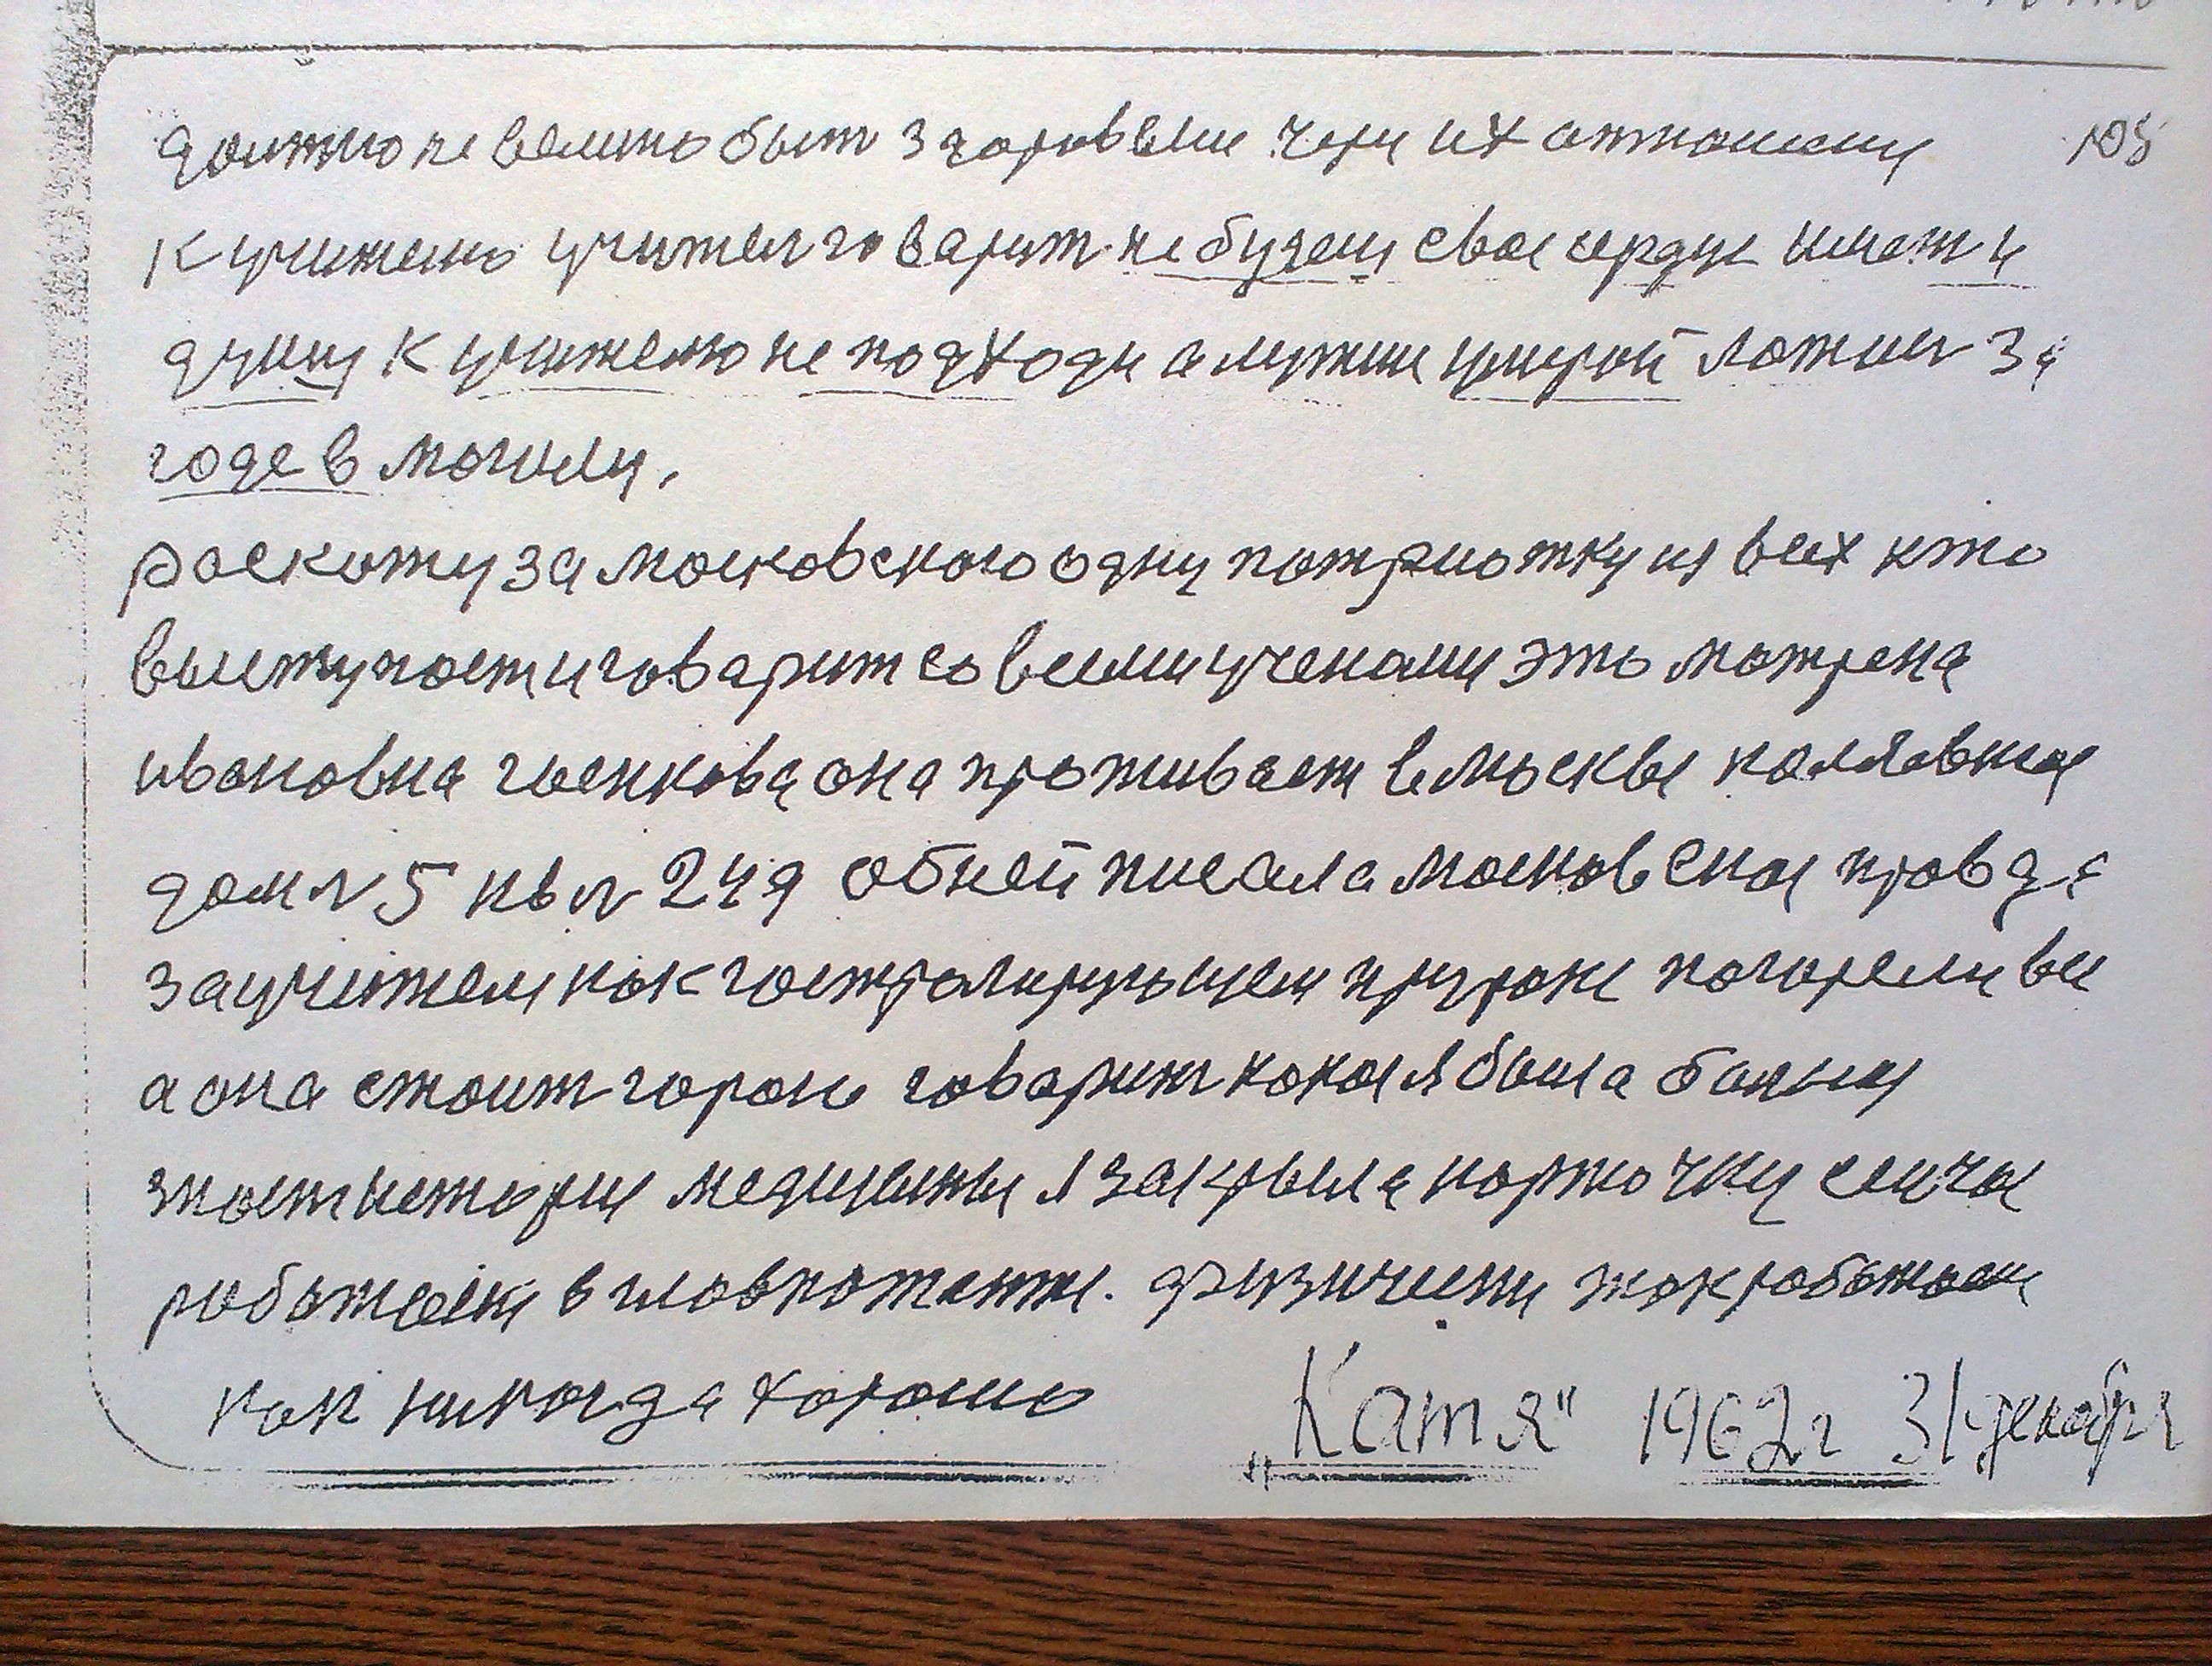 должно не велить быт здоровыми чери их атношени 105
к учителю учител говарит. не будеш свое сердце имет и
душу к учителю не подходи а лутши умирай ложис за
годе в могилу.
роскожу за московского одну потриотку из всех кто
выступает и говарит со всеми учеными это мотрена
ивоновна гоенкова она проживает в москве коллявноя
дом N 5 кв N 249 обней писала московскоя провда
за учителем как гостролирующем пруроке погорели все
а она стоит горою говарит кокоя я была болноя
знает истории медицины я закрыла карточку сичас
работоет в главпочтамти. физически так работоет
как никогда хорошо „Катя" 1962г 31 декабря